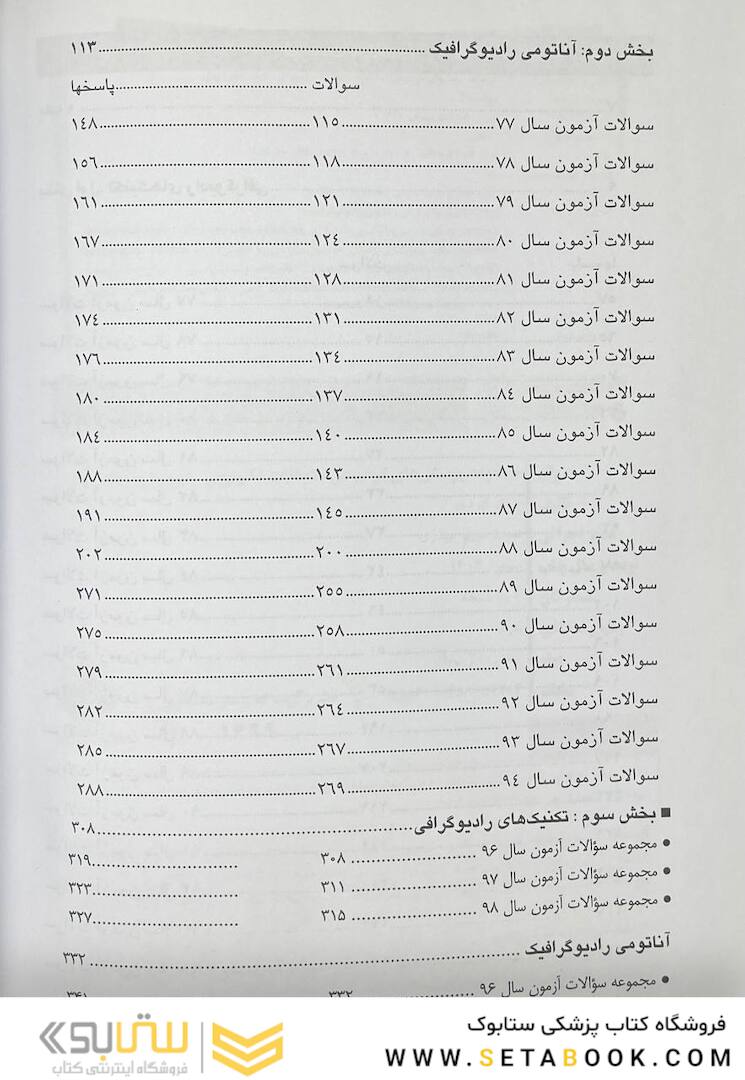 بخش دوم: آناتومی رادیوگرافیک ........ ۱۱۳
سوالات ........ پاسخها
سوالات آزمون سال ۷۷ ........ ۱۱۵ ........ ۱۴۸
سوالات آزمون سال ۷۸ ........ ۱۱۸ ........ ۱۵۶
سوالات آزمون سال ۷۹ ........ ۱۲۱ ........ ۱۶۱
سوالات آزمون سال ۸۰ ........ ۱۲۴ ........ ۱۶۷
سوالات آزمون سال ۸۱ ........ ۱۲۸ ........ ۱۷۱
سوالات آزمون سال ۸۲ ........ ۱۳۱ ........ ۱۷۴
سوالات آزمون سال ۸۳ ........ ۱۳۴ ........ ۱۷۶
سوالات آزمون سال ۸۴ ........ ۱۳۷ ........ ۱۸۰
سوالات آزمون سال ۸۵ ........ ۱۴۰ ........ ۱۸۴
سوالات آزمون سال ۸۶ ........ ۱۴۳ ........ ۱۸۸
سوالات آزمون سال ۸۷ ........ ۱۴۵ ........ ۱۹۱
سوالات آزمون سال ۸۸ ........ ۲۰۰ ........ ۲۰۲
سوالات آزمون سال ۸۹ ........ ۲۵۵ ........ ۲۷۱
سوالات آزمون سال ۹۰ ........ ۲۵۸ ........ ۲۷۵
سوالات آزمون سال ۹۱ ........ ۲۶۱ ........ ۲۷۹
سوالات آزمون سال ۹۲ ........ ۲۶۴ ........ ۲۸۲
سوالات آزمون سال ۹۳ ........ ۲۶۷ ........ ۲۸۵
سوالات آزمون سال ۹۴ ........ ۲۶۹ ........ ۲۸۸
■ بخش سوم : تکنیک‌های رادیوگرافی ........ ۳۰۸
● مجموعه سؤالات آزمون سال ۹۶ ........ ۳۰۸ ........ ۳۱۹
● مجموعه سؤالات آزمون سال ۹۷ ........ ۳۱۱ ........ ۳۲۳
● مجموعه سؤالات آزمون سال ۹۸ ........ ۳۱۵ ........ ۳۲۷
آناتومی رادیوگرافیک ........ ۳۳۲
● مجموعه سؤالات آزمون سال ۹۶ ........ ۳۳۲
فروشگاه کتاب پزشکی ستابوک
WWW.SETABOOK.COM
ستابوک
فروشگاه اینترنتی کتاب